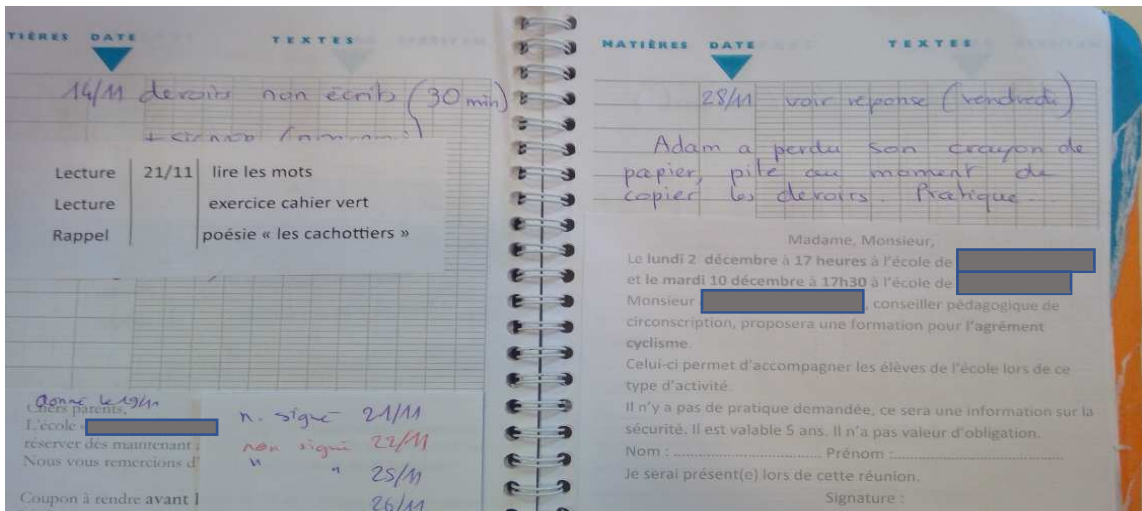 MATIÈRES DATE TEXTES
14/11 devoirs non écrits (30 min)
Lecture 21/11 lire les mots
Lecture exercice cahier vert
Rappel poésie « les cachottiers »
donné le 19/11
Chers parents,
L'école
réserver dès maintenant
Nous vous remercions d'
Coupon à rendre avant l
n. signé 21/11
non signé 22/11
" " 25/11
26/11
MATIÈRES DATE TEXTES
28/11 voir réponse (vendredi)
Adam a perdu son crayon de
papier, pile au moment de
copier les devoirs. Pratique...
Madame, Monsieur,
Le lundi 2 décembre à 17 heures à l'école de
et le mardi 10 décembre à 17h30 à l'école de
Monsieur , conseiller pédagogique de
circonscription, proposera une formation pour l'agrément
cyclisme.
Celui-ci permet d'accompagner les élèves de l'école lors de ce
type d'activité.
Il n'y a pas de pratique demandée, ce sera une information sur la
sécurité. Il est valable 5 ans. Il n'a pas valeur d'obligation.
Nom : ................................ Prénom :................................
Je serai présent(e) lors de cette réunion.
Signature :